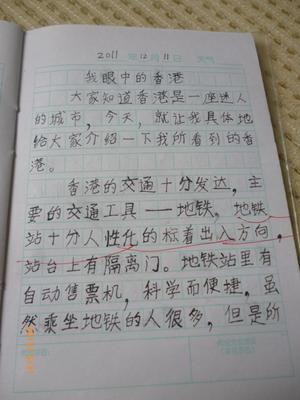 2011 年 12 月 11 日 天气
我眼中的香港
大家知道香港是一座迷人
的城市，今天，就让我具体地
给大家介绍一下我所看到的香
港。
香港的交通十分发达，主
要的交通工具——地铁，地铁
站十分人性化的标着出入方向，
站台上有隔离门。地铁站里有
自动售票机，科学而便捷，虽
然乘坐地铁的人很多，但是所